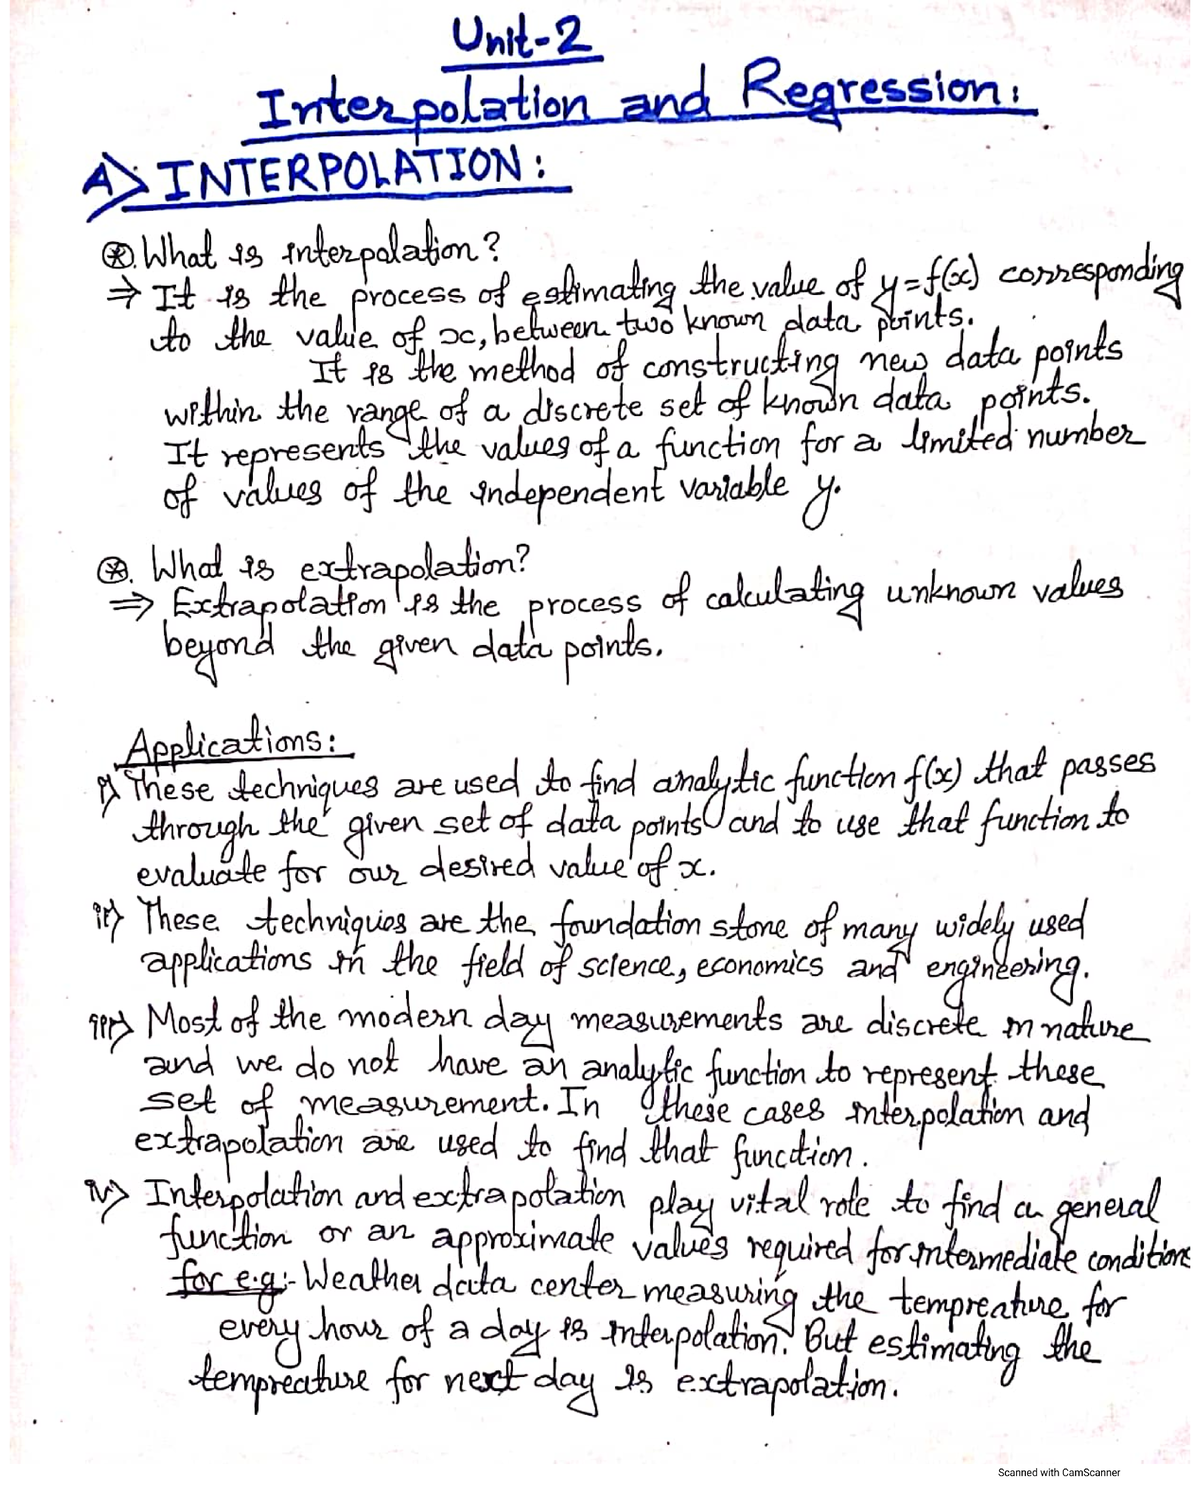 Unit-2
Interpolation and Regression:
A> INTERPOLATION:
⊛. What is interpolation?
⇒ It is the process of estimating the value of y=f(x) corresponding
to the value of x, between two known data points.
It is the method of constructing new data points
within the range of a discrete set of known data points.
It represents the values of a function for a limited number
of values of the independent variable y.
⊛. What is extrapolation?
⇒ Extrapolation is the process of calculating unknown values
beyond the given data points.
Applications:
i> These techniques are used to find analytic function f(x) that passes
through the given set of data points and to use that function to
evaluate for our desired value of x.
ii> These techniques are the foundation stone of many widely used
applications in the field of science, economics and engineering.
iii> Most of the modern day measurements are discrete in nature
and we do not have an analytic function to represent these
set of measurement. In these cases interpolation and
extrapolation are used to find that function.
iv> Interpolation and extrapolation play vital role to find a general
function or an approximate values required for intermediate conditions
for e.g:- Weather data center measuring the tempreature for
every hour of a day is interpolation. But estimating the
tempreature for next day is extrapolation.
Scanned with CamScanner